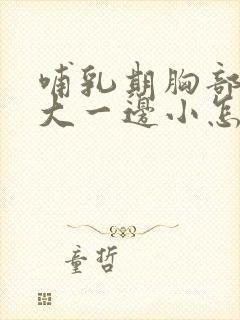 哺乳期胸部
大一邊小怎
童哲